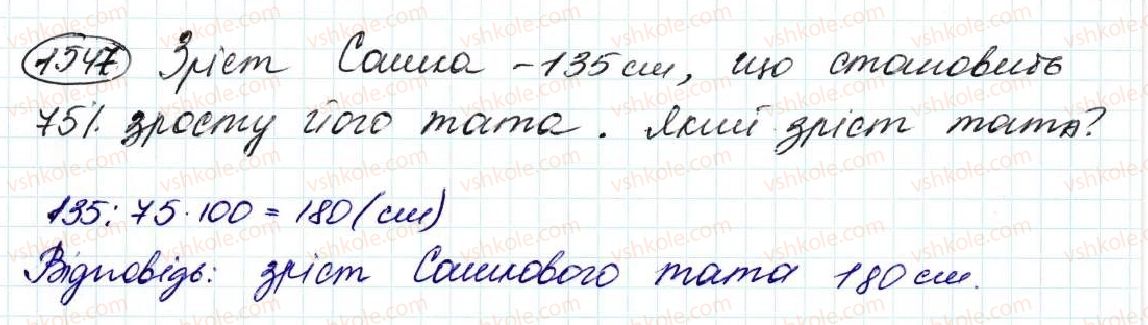 1547 Зріст Сашка - 135 см, що становить
75% зросту його тата. Який зріст тата?
135 : 75 · 100 = 180 (см)
Відповідь: зріст Сашкового тата 180 см.